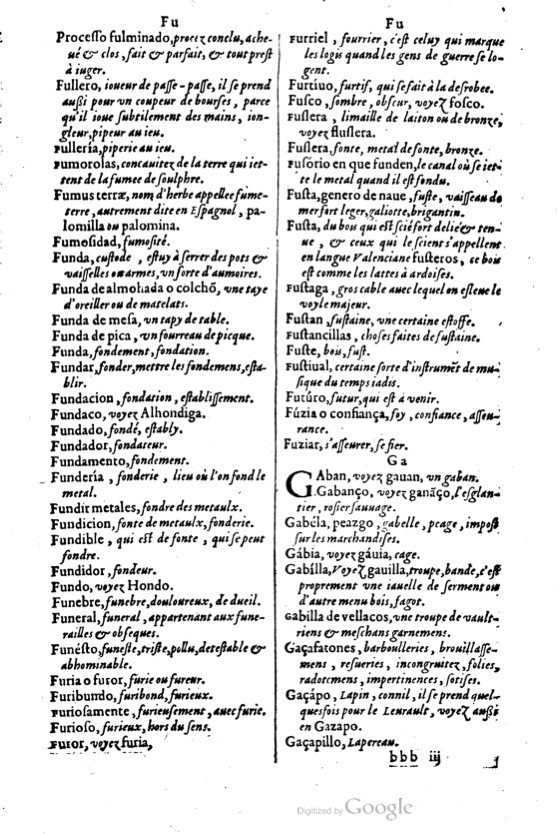 Fu
Processo fulminado, procez conclu, ache-
ué & clos, fait & parfait, & tout prest
à iuger.
Fullero, ioueur de passe-passe, il se prend
aussi pour vn coupeur de bourses, parce
qu'il ioue subtilement des mains, ion-
gleur, pipeur au ieu.
Fullería, piperie au ieu.
Fumorolas, concauitez de la terre qui iet-
tent de la fumee de soulphre.
Fumus terræ, nom d'herbe appellee fume-
terre, autrement dite en Espagnol, pa-
lomilla ou palomina.
Fumosidad, fumosité.
Funda, custode, estuy à serrer des pots &
vaisselles ou armes, vn forte d'aumoires.
Funda de almohada o colchō, vne taye
d'oreiller ou de matelats.
Funda de mesa, vn tapy de table.
Funda de pica, vn fourreau de picque.
Funda, fondement, fondation.
Fundar, fonder, mettre les fondemens, esta-
blir.
Fundacion, fondation, establissement.
Fundaco, voyez Alhondiga.
Fundado, fondé, establỳ.
Fundador, fondateur.
Fundamento, fondement.
Fundería, fonderie, lieu où l'on fond le
metal.
Fundir metales, fondre des metaulx.
Fundicion, fonte de metaulx, fonderie.
Fundible, qui est de fonte, qui se peut
fondre.
Fundidor, fondeur.
Fundo, voyez Hondo.
Funebre, funebre, douloureux, de dueil.
Funeral, funeral, appartenant aux fune-
railles & obseques.
Funésto, funeste, triste, pollu, detestable &
abhominable.
Furia o furor, furie ou fureur.
Furibundo, furibond, furieux.
Furiosamente, furieusement, auec furie.
Furioso, furieux, hors du sens.
Furor, voyez furia,
Fu
Furriel, fourrier, c'est celuy qui marque
les logis quand les gens de guerre se lo-
gent.
Furtíuo, furtif, qui se fait à la desrobee.
Fusco, sombre, obscur, voyez fosco.
Fuslera, limaille de laiton ou de bronze,
voyez fluslera.
Fuslera, fonte, metal de fonte, bronze.
Fusório en que funden, le canal où se iet-
te le metal quand il est fondu.
Fusta, genero de naue, fuste, vaisseau de
mer fort leger, galiotte, brigantin.
Fusta, du bois qui est scié fort delié & ten-
ue, & ceux qui le scient s'appellent
en langue Valenciane fusteros, ce bois
est comme les lattes à ardoises.
Fustaga, gros cable auec lequel on esleue le
voyle majeur.
Fustan, fustaine, vne certaine estoffe.
Fustancillas, choses faites de fustaine.
Fuste, bois, fust.
Fustiual, certaine sorte d'instrumẽt de mu-
sique du temps iadis.
Futúro, futur, qui est à venir.
Fúzia o confiança, foy, confiance, asseu-
rance.
Fuziar, s'asseurer, se fier.
Ga
GAban, voyez gauan, vn gaban.
Gabanço, voyez ganãço, l'esglan-
tier, rosier sauuage.
Gabéla, peazgo, gabelle, peage, impost
sur les marchandises.
Gábia, voyez gáuia, cage.
Gabílla, voyez gauilla, troupe, bande, c'est
proprement vne iauelle de serment ou
d'autre menu bois, fagot.
Gabilla de vellacos, vne troupe de vault-
riens & meschans garnemens.
Gaçafatones, barboulleries, brouillasse-
mens, resueries, incongruitez, folies,
radotemens, impertinences, sotises.
Gaçápo, Lapin, connil, il se prend quel-
quesfois pour le Leurault, voyez aussi
en Gazapo.
Gaçapillo, Lapereau.
bbb iij
Digitized by Google